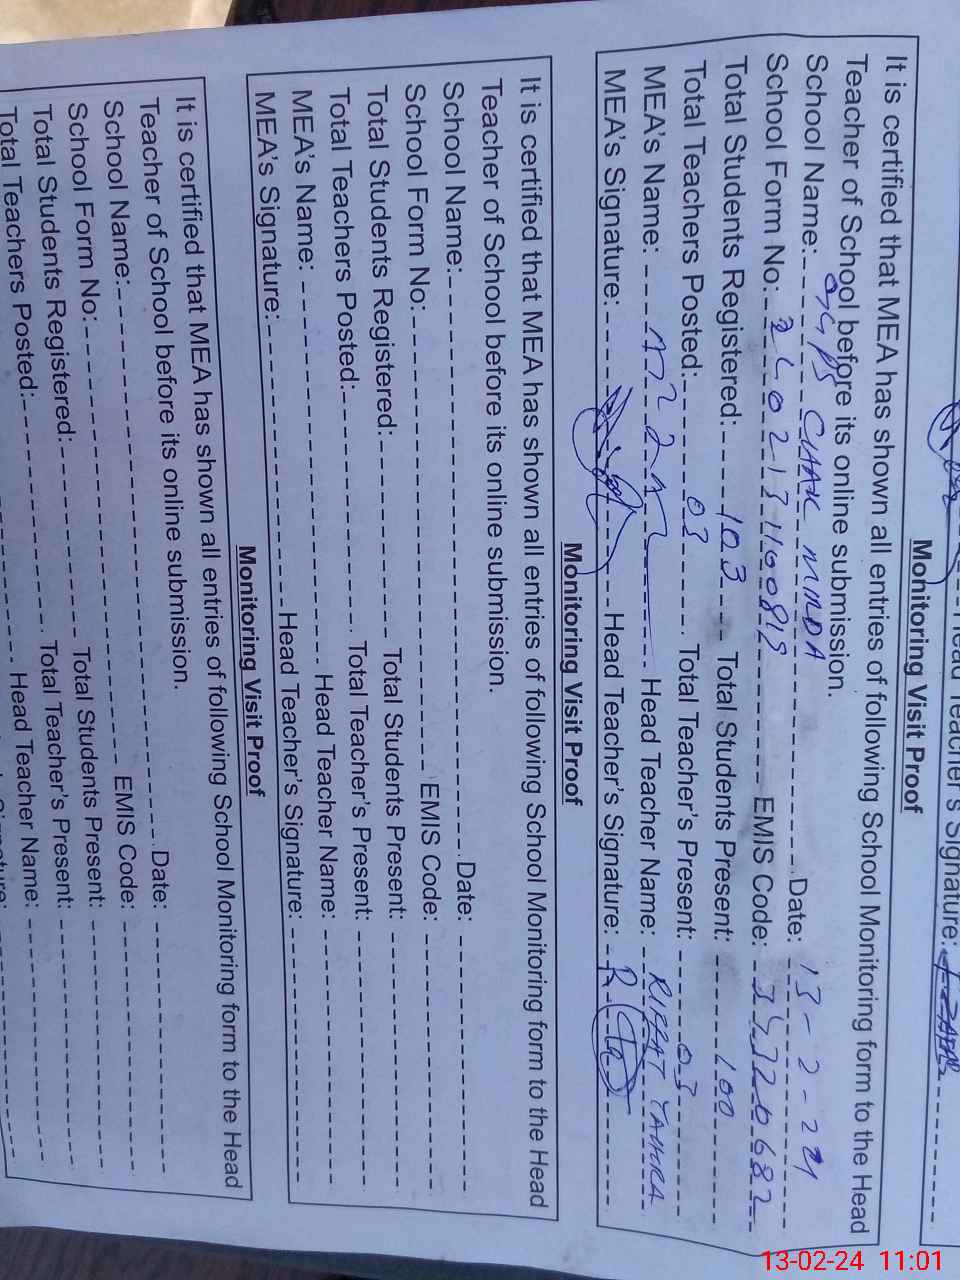 Head Teacher's Signature:
Monitoring Visit Proof
It is certified that MEA has shown all entries of following School Monitoring form to the Head
Teacher of School before its online submission.
School Name: GGPS CHAK MINDA Date: 13-2-24
School Form No: EMIS Code:
Total Students Registered: 103 Total Students Present: 100
Total Teachers Posted: 03 Total Teacher's Present: 03
MEA's Name: Head Teacher Name: RIFFAT TAHIRA
MEA's Signature: Head Teacher's Signature:
Monitoring Visit Proof
It is certified that MEA has shown all entries of following School Monitoring form to the Head
Teacher of School before its online submission.
School Name: Date:
School Form No: EMIS Code:
Total Students Registered: Total Students Present:
Total Teachers Posted: Total Teacher's Present:
MEA's Name: Head Teacher Name:
MEA's Signature: Head Teacher's Signature:
Monitoring Visit Proof
It is certified that MEA has shown all entries of following School Monitoring form to the Head
Teacher of School before its online submission.
School Name: Date:
School Form No: EMIS Code:
Total Students Registered: Total Students Present:
Total Teachers Posted: Total Teacher's Present:
Head Teacher Name:
13-02-24 11:01